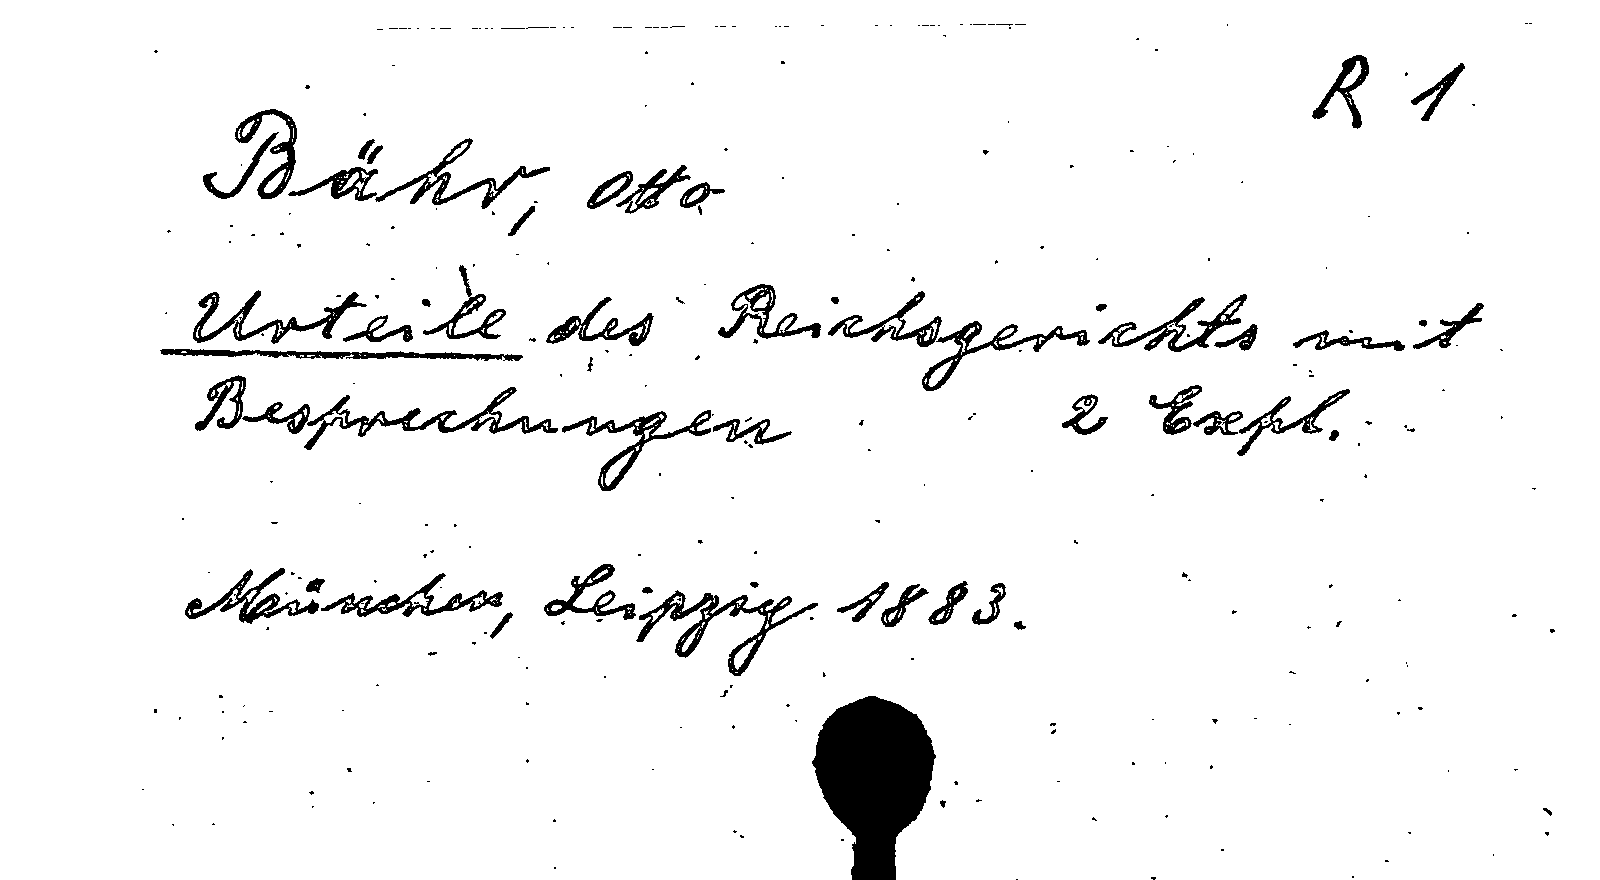 R 1
Bähr, Otto
Urteile des Reichsgerichts mit
Besprechungen 2 Expl.
München, Leipzig 1883.